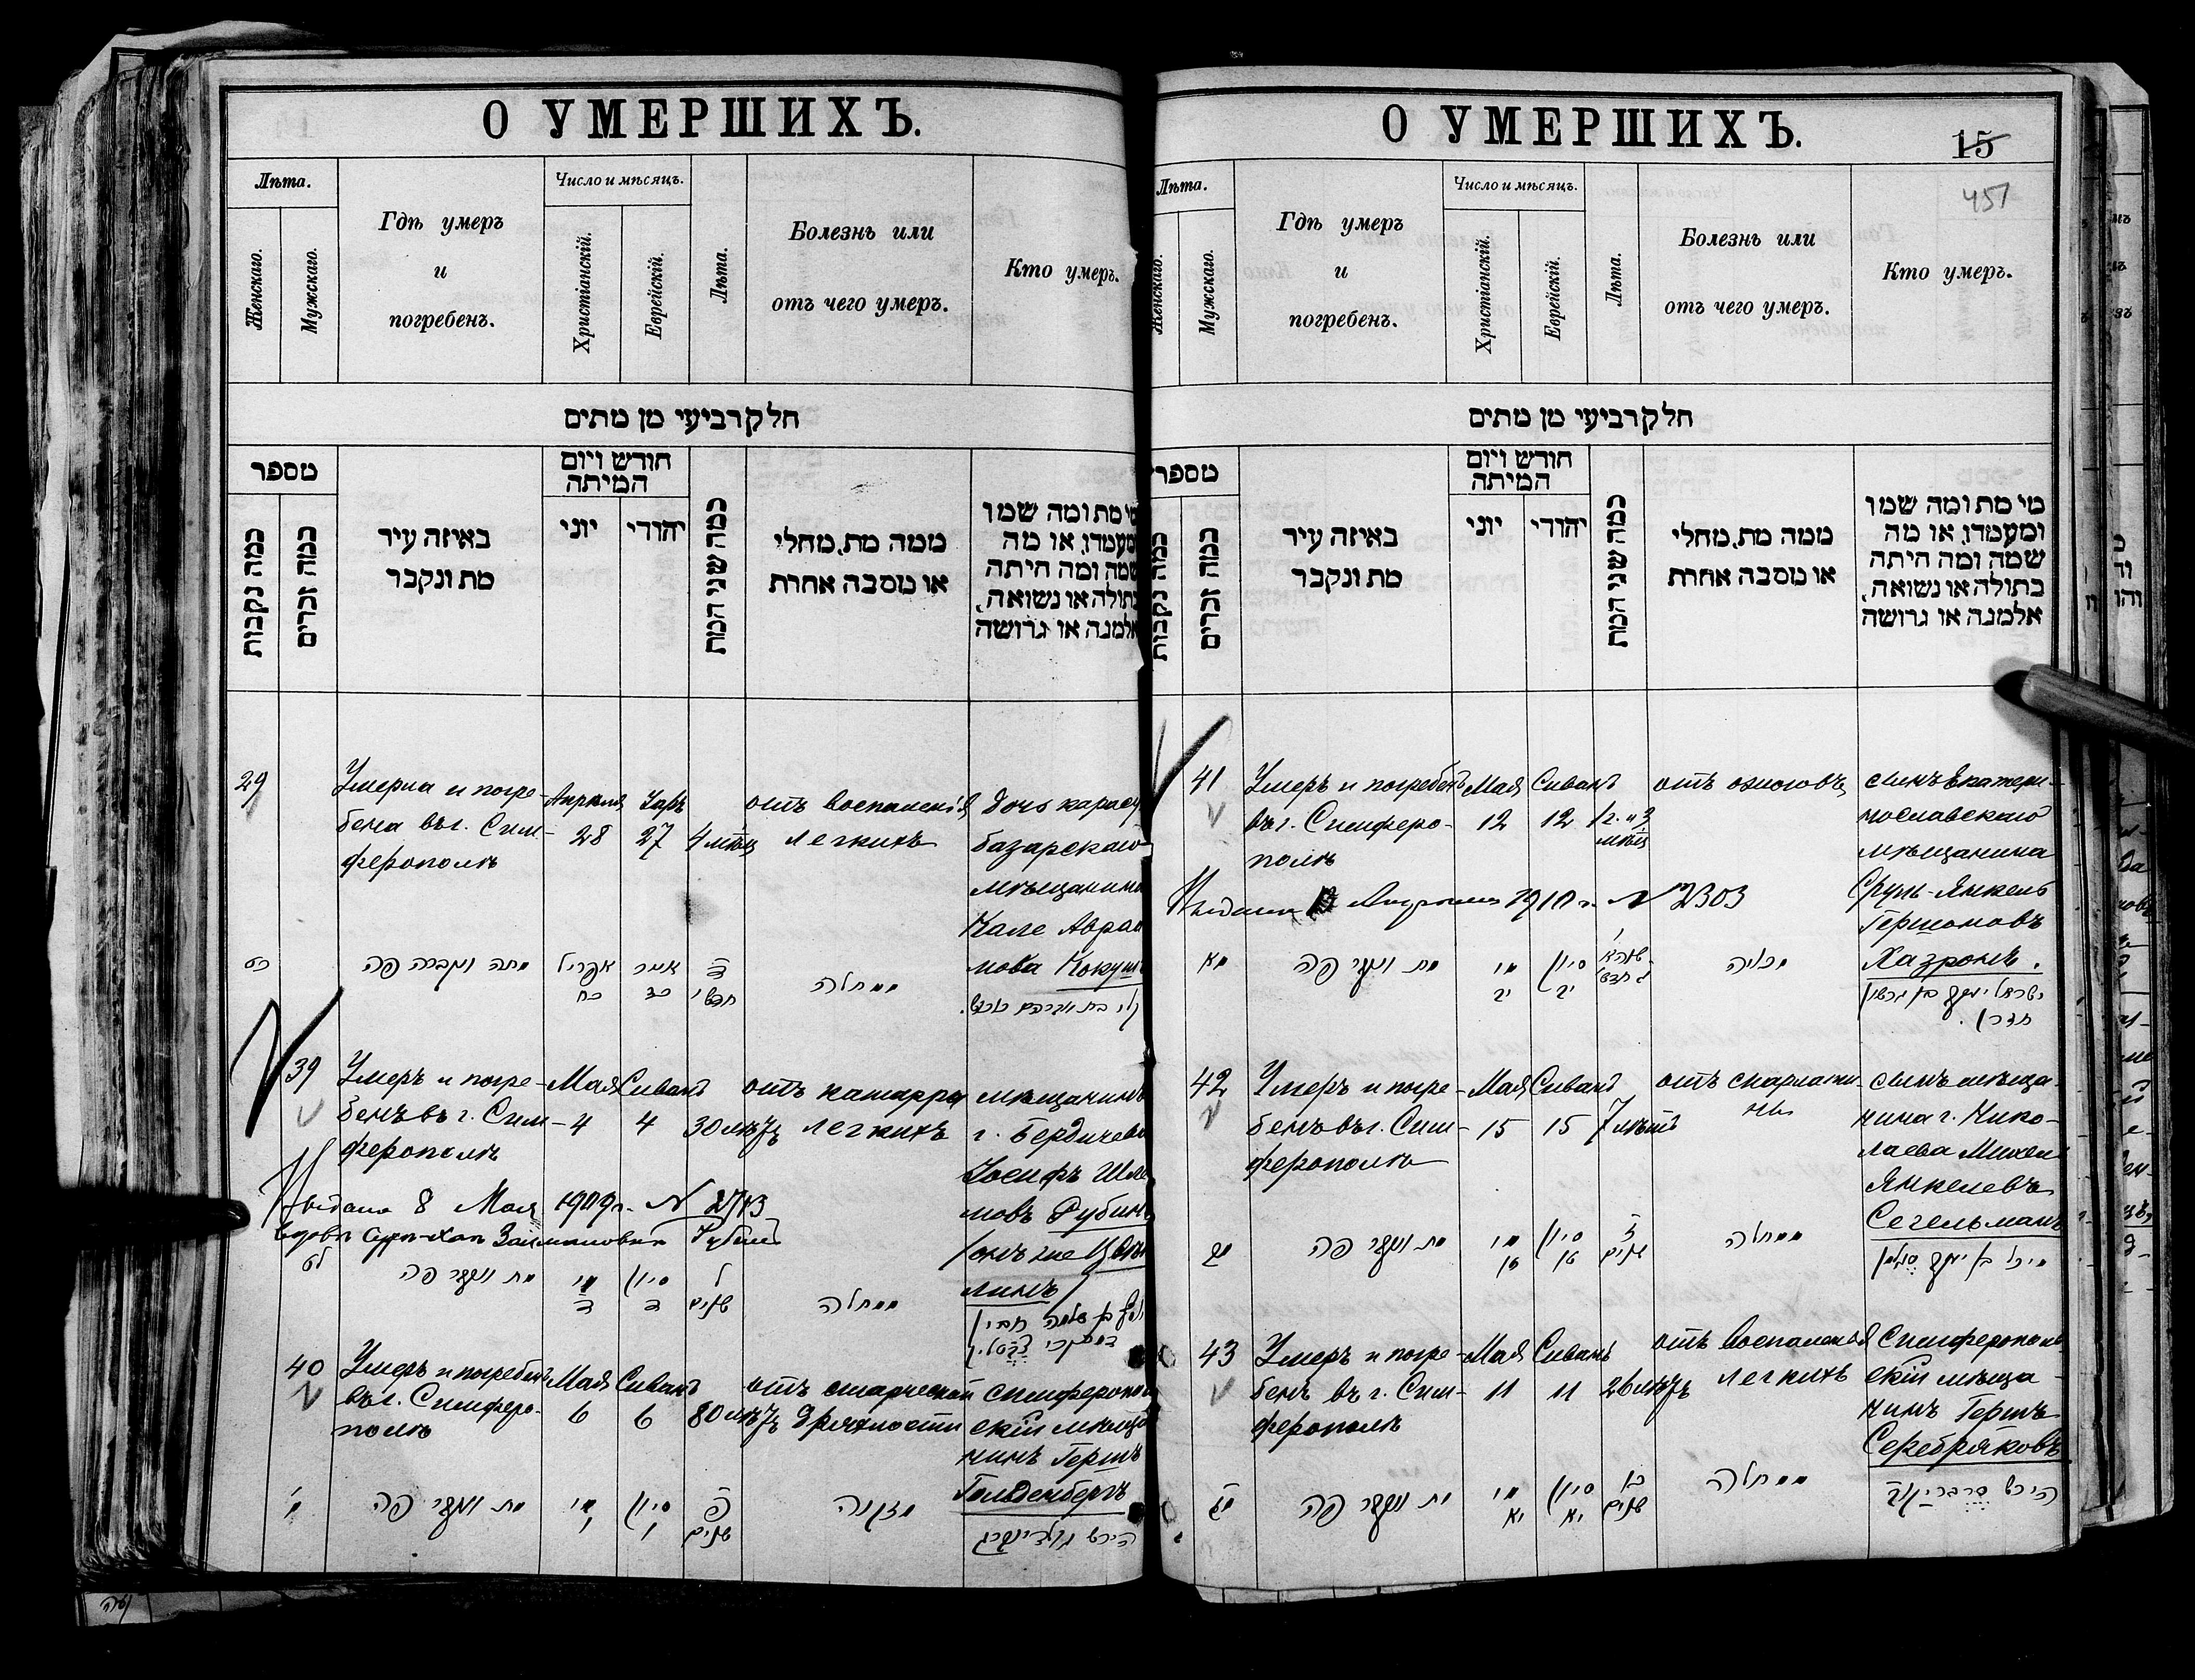 О УМЕРШИХЪ.
Лѣта.
Женскаго.
Мужскаго.
Гдѣ умеръ
и
погребенъ.
Число и мѣсяцъ.
Христіанскій.
Еврейскій.
Лѣта.
Болезнь или
отъ чего умеръ.
Кто умеръ.
חלק רביעי מן מתים
מספר
כמה נקבות
כמה זכרים
באיזה עיר
מת ונקבר
חודש ויום
המיתה
יוני
יהודי
כמה שני המת
ממה מת, מחלי
או מסבה אחרת
מי מת ומה שמו
ומעמדו, או מה
שמה ומה היתה
בתולה או נשואה,
אלמנה או גרושה
29
Умерла и погре-
бена въ г. Сим-
ферополѣ
Апрѣля
28
Іаръ
27
4 мѣц
отъ воспаленія
легкихъ
дочь карасу
базарскаго
мѣщанина
Кале Авра
мова
כט
מתה ונקברה פה
אפריל
כח
אייר
כז
ד
חדשי
ממחלה
39
Умеръ и погре-
бенъ въ г. Сим-
ферополѣ
Мая
4
Сиванъ
4
30 лѣтъ
отъ катарра
легкихъ
мѣщанинъ
г. Бердичева
Іосифъ Шле
мовъ Рубин
онъ же
линъ
Выдана 8 Мая 1909 г. N 2713
вдовѣ
לט
מת ונקבר פה
מיי
ד
סיון
ד
ל
שנים
ממחלה
40
Умеръ и погребенъ
въ г. Симферо-
полѣ
Мая
6
Сиванъ
6
80 лѣтъ
отъ старческой
дряхлости
симферополь
скій мѣща
нинъ Гершъ
Гольденбергъ
מ
מת ונקבר פה
מיי
ו
סיון
ו
פ
שנים
מזקנה
הירש גולדענבערג
О УМЕРШИХЪ.
15
451
Лѣта.
Женскаго.
Мужскаго.
Гдѣ умеръ
и
погребенъ.
Число и мѣсяцъ.
Христіанскій.
Еврейскій.
Лѣта.
Болезнь или
отъ чего умеръ.
Кто умеръ.
חלק רביעי מן מתים
מספר
כמה נקבות
כמה זכרים
באיזה עיר
מת ונקבר
חודש ויום
המיתה
יוני
יהודי
כמה שני המת
ממה מת, מחלי
או מסבה אחרת
מי מת ומה שמו
ומעמדו, או מה
שמה ומה היתה
בתולה או נשואה,
אלמנה או גרושה
41
Умеръ и погребенъ
въ г. Симферо-
полѣ
Мая
12
Сиванъ
12
1 г. и 3
мѣц
отъ ожоговъ
сынъ Екатери-
нославскаго
мѣщанина
Сруль-Янкель
Гершоновъ
Хазронъ.
1910 г. N 2303
מא
מת ונקבר פה
מיי
יב
סיון
יב
מכויה
ישראל יעקב בן גרשון
חזרון.
42
Умеръ и погре-
бенъ въ г. Сим-
ферополѣ
Мая
15
Сиванъ
15
7 лѣтъ
отъ скарлати-
ны
сынъ мѣща-
нина г. Нико-
лаева Михель
Янкелевъ
Сегельманъ
מב
מת ונקבר פה
מיי
טו
סיון
טו
ז
שנים
ממחלה
מיכל בן יעקב סגלמן
43
Умеръ и погре-
бенъ въ г. Сим-
ферополѣ
Мая
11
Сиванъ
11
26 лѣтъ
отъ воспаленія
легкихъ
Симферополь
скій мѣща-
нинъ Гершъ
Серебряковъ
מג
מת ונקבר פה
מיי
יא
סיון
יא
כו
שנים
ממחלה
הירש סרבריאקב